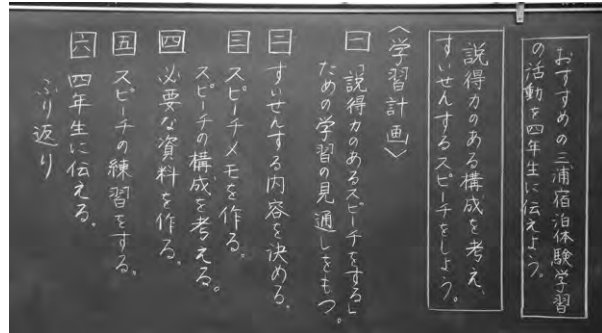 おすすめの三浦宿泊体験学習
の活動を四年生に伝えよう。
説得力のある構成を考え、
すいせんするスピーチをしよう。
〈学習計画〉
一 「説得力のあるスピーチをする」
ための学習の見通しをもつ。
二 すいせんする内容を決める。
三 スピーチメモを作る。
スピーチの構成を考える。
四 必要な資料を作る。
五 スピーチの練習をする。
六 四年生に伝える。
ふり返り